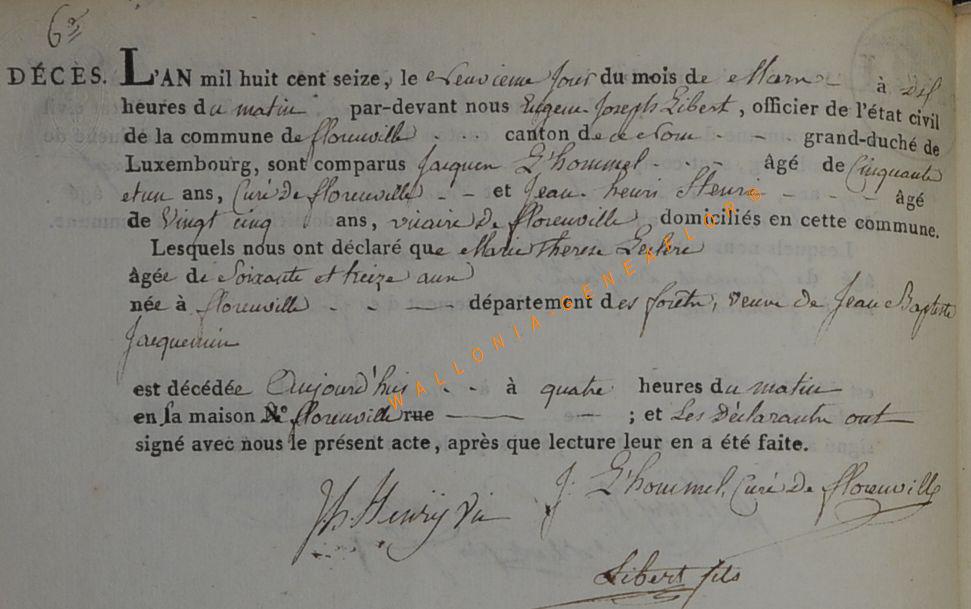 6
DÉCÈS. L'AN mil huit cent seize, le neuvieme jour du mois de Mars à dix
heures du matin par-devant nous Eugene Joseph Libert, officier de l'état civil
de la commune de florenville canton de grand-duché de
Luxembourg, sont comparus Jacques L'hommel âgé de Cinquante
et un ans, Curé De florenville et Jean henri Henri âgé
de Vingt cinq ans, vicaire de florenville domiciliés en cette commune.
Lesquels nous ont déclaré que Marie Therese Leclere
âgée de Soixante et treize ans
née à florenville département des forêts, veuve de Jean Baptiste
Jacquemin
est décédée Aujourd'hui à quatre heures du matin
en sa maison N° florenville rue ; et Les Déclarants ont
signé avec nous le présent acte, après que lecture leur en a été faite.
J. L'hommel, Curé De florenville
Jh. Henry Vic
Libert fils
WALLONIA-GENEAFLOR©